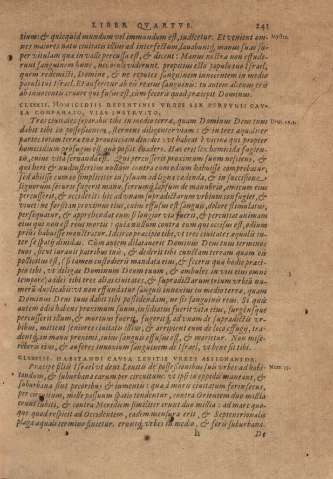 LIBER QVARTVS. 241
tium: & quicquid mundum vel immundum est, iudicetur. Et venient om-
nes maiores natu ciuitatis illius ad interfectum, lauabuntque manus suas su-
per vitulam quæ in valle percussa est, & dicent: Manus nostræ non effude-
runt sanguinem hunc, nec oculi viderunt. propitius esto populo tuo Israel,
quem redemisti, Domine, & ne reputes sanguinem innocentem in medio
populi tui Israel. Et auferetur ab eis reatus sanguinis: tu autem alienus eris
ab innocentis cruore qui fusus est, cùm feceris quod præcepit Dominus.
HOMICIDIIS REPENTINIS VRBES SEV PERFVGII CAV-
SA COMPARATO, VIAS INSTRVITO.
Tres ciuitates separabis tibi in medio terræ, quam Dominus Deus tuus
dabit tibi in possessionem, sternens diligenter viam: & in tres æqualiter
partes totam terræ tuæ prouinciam diuides: vt habeat è vicino qui propter
homicidium profugus est, quò possit euadere. Hæc erit lex homicidæ fugien-
tis, cuius vita seruanda est. Qui percusserit proximum suum nesciens, &
qui heri & nudiustertius nullum contra eum odium habuisse comprobatur,
sed abiisse cum eo simpliciter in siluam ad ligna cædenda, & in succisione
lignorum securis fugerit manu, ferrumque lapsum de manubrio, amicum eius
percusserit, & occiderit: hic ad vnam supradictarum vrbium confugiet, &
viuet: ne forsitan proximus eius, cuius effusus est sanguis, dolore stimulatus,
persequatur, & apprehendat eum si longior via fuerit, & percutiat animam
eius qui non est reus mortis: quia nullum contra eum qui occisus est, odium
prius habuisse monstratur. Idcirco præcipio tibi, vt tres ciuitates æqualis in-
ter se spatij diuidas. Cùm autem dilatauerit Dominus Deus tuus terminos
tuos, sicut iurauit patribus tuis, & dederit tibi cunctam terram quam eis
pollicitus est, (si tamen custodieris mandata eius, & feceris quæ hodie præci-
pio tibi, vt diligas Dominum Deum tuum, & ambules in viis eius omni
tempore) addes tibi tres alias ciuitates, & supradictarum trium vrbiū nu-
merū duplicabis: vt non effundatur sanguis innoxius in medio terræ, quam
Dominus Deus tuus dabit tibi possidendam, ne sis sanguinis reus. Si quis
autem odio habens proximum suum, insidiatus fuerit vitæ eius, surgensque
percusserit illum, & mortuus fuerit, fugeritque ad vnam de supradictis vr-
bibus, mittent seniores ciuitatis illius, & arripient eum de loco effugij, tra-
dentque in manu proximi, cuius sanguis effusus est, & morietur. Non mise-
reberis eius, & auferes innoxium sanguinem de Israel, vt bene sit tibi.
HABITANDI CAVSA LEVITIS VRBES ASSIGNANTOR.
Num. 35.
Præcipe filiis Israel vt dent Leuitis de possessionibus suis vrbes ad habi-
tandum, & suburbana earum per circuitum: vt ipsi in oppidis maneant, &
suburbana sint pecoribus & iumentis: quæ à muris ciuitatum forinsecus,
per circuitum, mille passuum spatio tendentur. contra Orientem duo millia
erunt cubiti, & contra Meridiem similiter erunt duo millia: ad mare quo-
que quod respicit ad Occidentem, eadem mensura erit, & Septentrionalis
plaga æquali termino finietur. eruntque vrbes in medio, & foris suburbana.
De